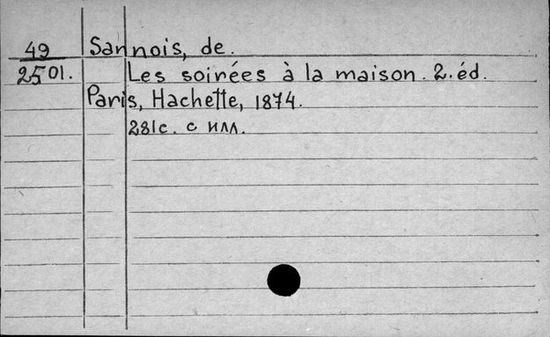 49 Sannois, de.
2501. Les soirées à la maison. 2. éd.
Paris, Hachette, 1874.
281с. с илл.